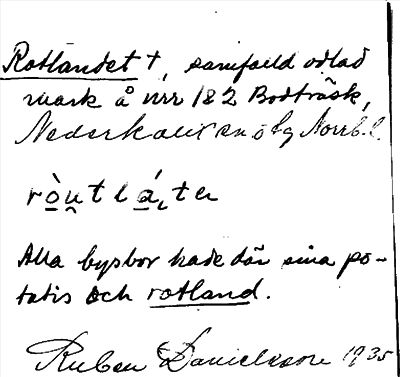 Rotlandet †, samfälld odlad
mark å nrr 1&2 Bodträsk,
Nederkalix sn ö bg Norrb. l.
ròu̯tlátɛn
Alla bysbor hade där sina po-
tatis och rotland.
Ruben Danielsson 1935